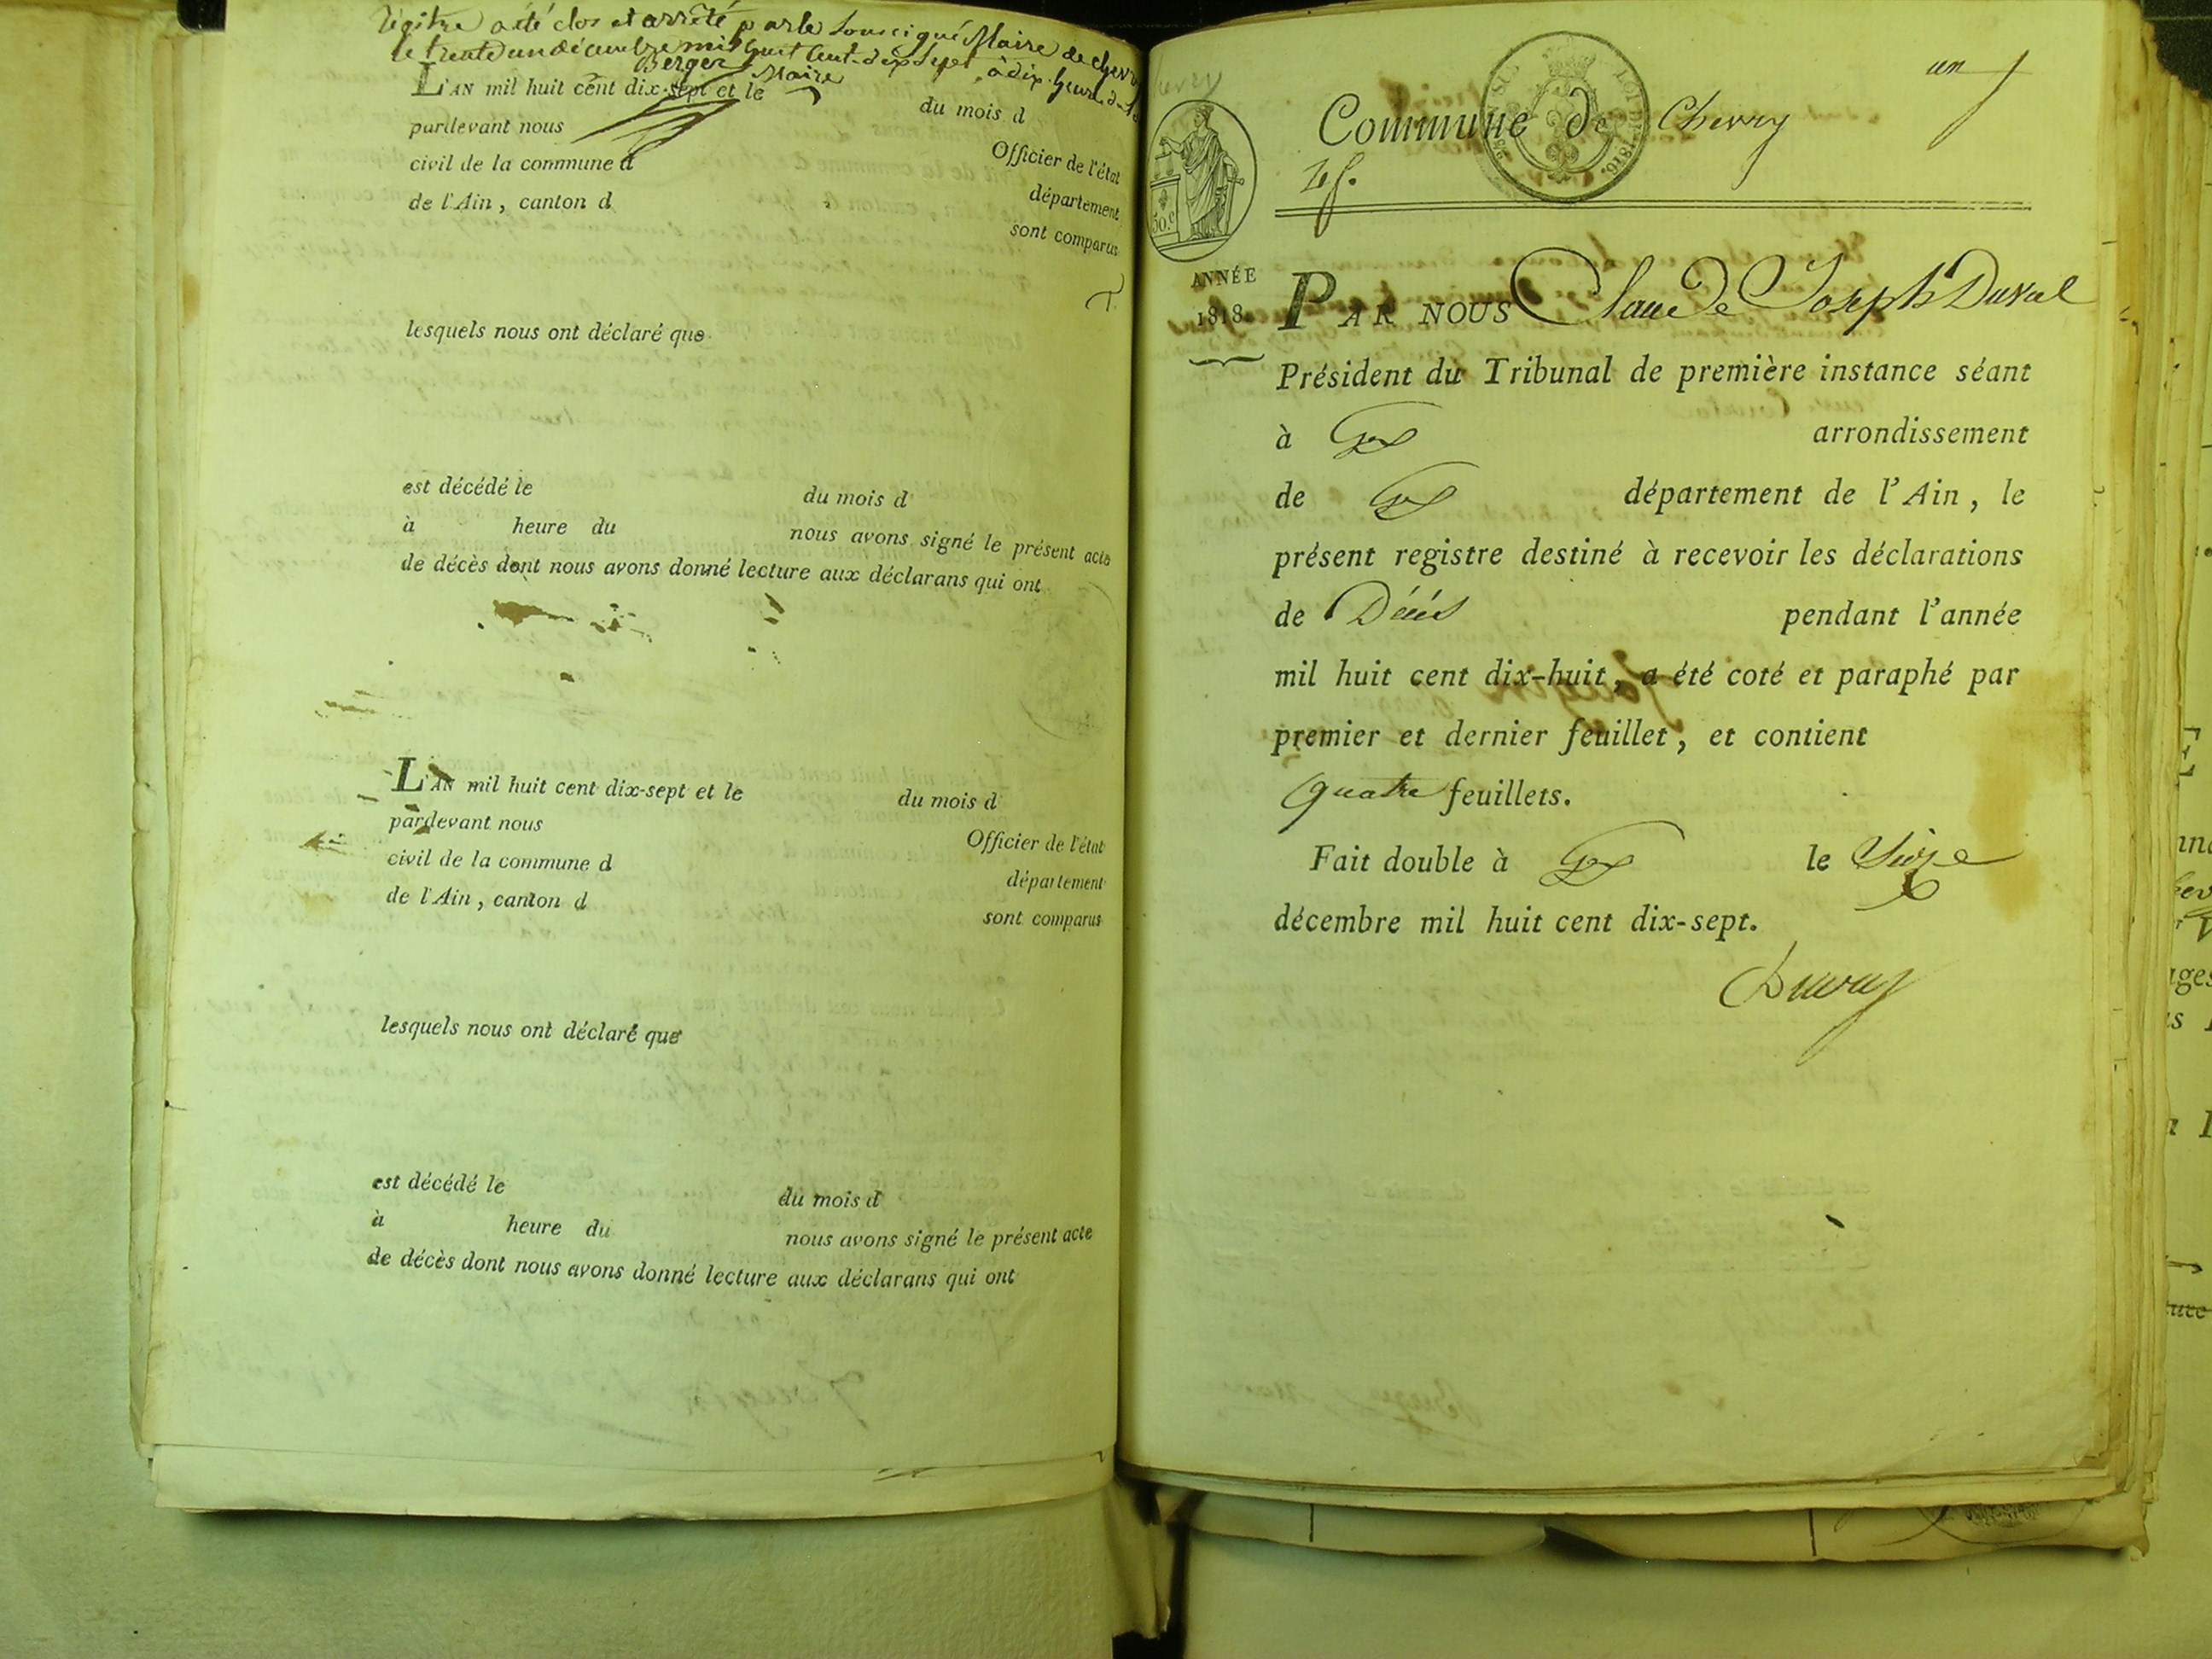 régitre a été clos et arrêté par le Soussigné Maire de chevry
le trente un décembre mil huit cent dix Sept, à dix heure du
Berger Maire
L'AN mil huit cent dix-sept et le du mois d
pardevant nous Officier de l'état
civil de la commune d département
de l'Ain, canton d sont comparus
lesquels nous ont déclaré que
est décédé le du mois d
à heure du nous avons signé le présent acte
de décès dont nous avons donné lecture aux déclarans qui ont
L'AN mil huit cent dix-sept et le du mois d
pardevant nous Officier de l'état
civil de la commune d département
de l'Ain, canton d sont comparus
lesquels nous ont déclaré que
est décédé le du mois d
à heure du nous avons signé le présent acte
de décès dont nous avons donné lecture aux déclarans qui ont
un
Commune de Chevry
4 f.
50.c
LOI DE 1816.
ANNÉE
1818.
PAR NOUS Claude Joseph Duval
Président du Tribunal de première instance séant
à Gex arrondissement
de Gex département de l'Ain, le
présent registre destiné à recevoir les déclarations
de Décès pendant l'année
mil huit cent dix-huit, a été coté et paraphé par
premier et dernier feuillet, et contient
quatre feuillets.
Fait double à Gex le
décembre mil huit cent dix-sept.
Duval